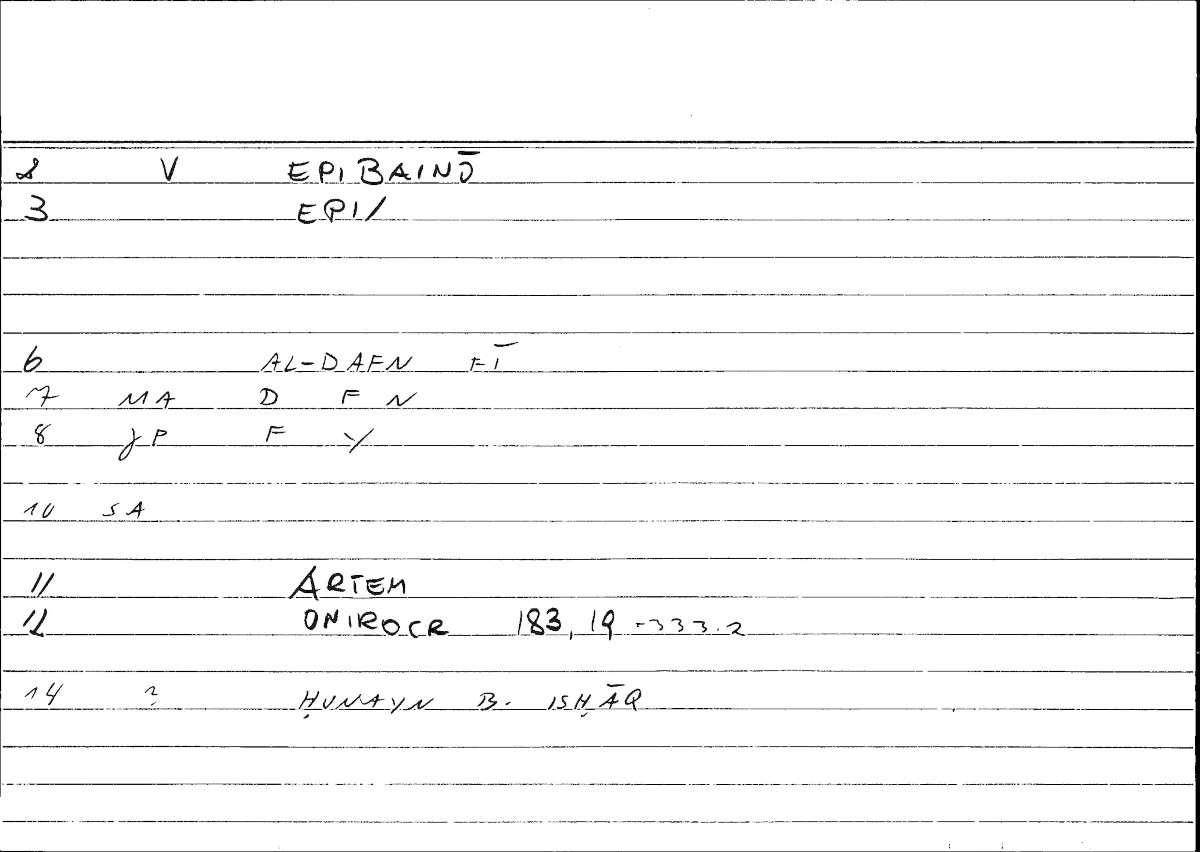 2 V EPIBAINŌ
3 EPI/
6 AL-DAFN FĪ
7 MA D F N
8 JP F Y
10 SA
11 ARTEM
12 ONIROCR 183,19-333.2
14 ? ḤUNAYN B. ISḤĀQ